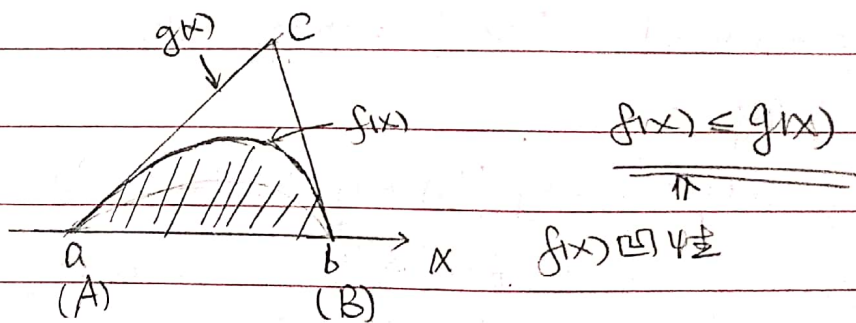 g(x)
C
f(x)
f(x) ≤ g(x)
⇑
a b x
f(x)凹性
(A) (B)